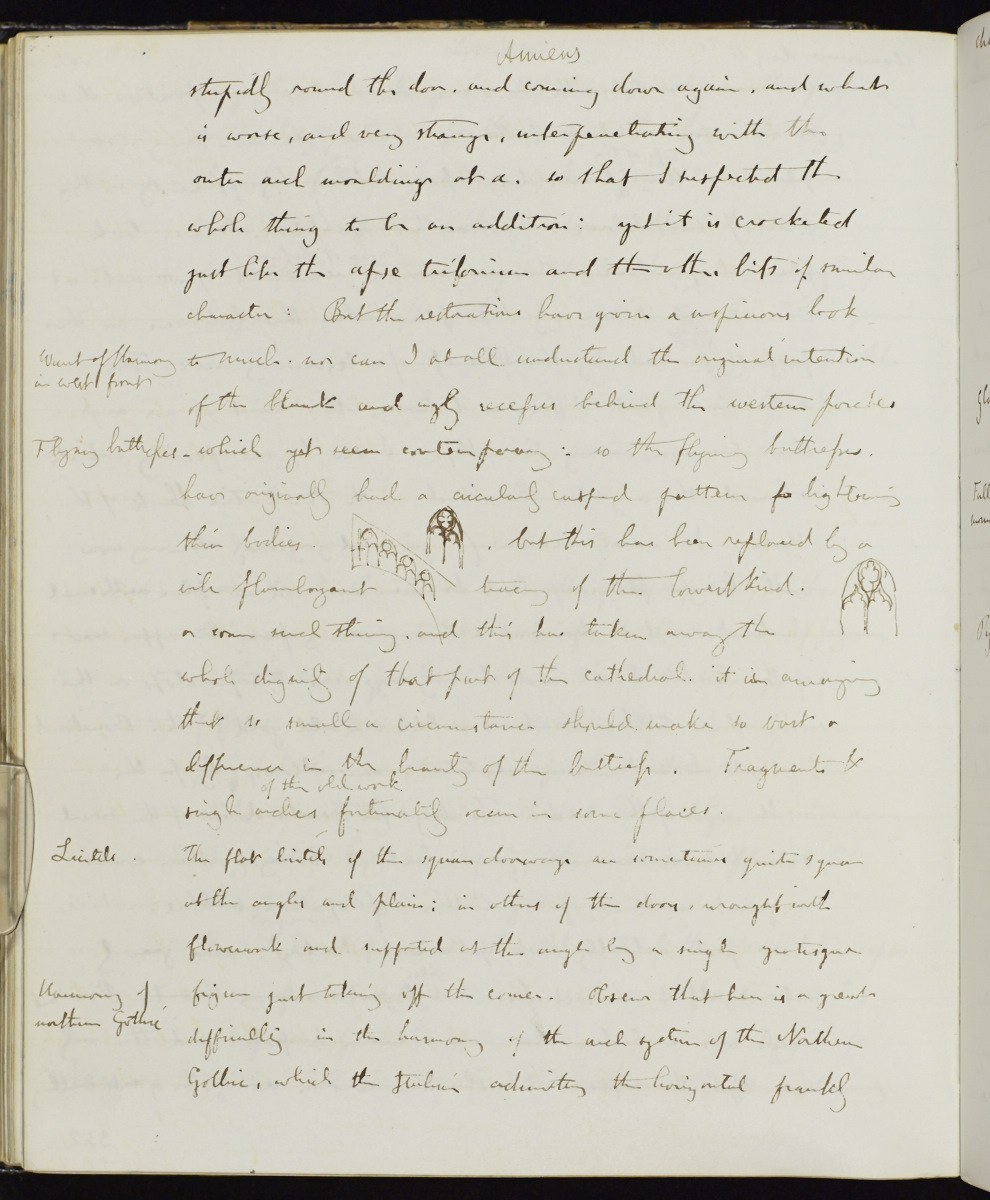 Amiens
stupidly round the door, and coming down again, and what
is worse, and very strange, interpenetrating with the
outer arch mouldings at a. so that I suspected the
whole thing to be an addition: yet it is crocketed
just like the apse triforium and the other bits of similar
character: But the restorations have given a suspicious look
Want of Harmony
in west front
to much. nor can I at all understand the original intention
of the blank and ugly recesses behind the western porches
Flying buttresses - which yet seem contemporary: so the flying buttresses.
have originally had a circularly cusped pattern lightening
their bodies. , but this has been replaced by a
vile flamboyant tracery of the lowest kind.
or some such thing, and this has taken away the
whole dignity of that part of the cathedral. it is amazing
that so small a circumstance should make so vast a
difference in the beauty of the buttress. Fragments &
of the old work
single arches fortunately occur in some places.
Lintels.
The flat lintels of the square doorways are sometimes quite square
at the angles and plain; in others of the doors, wrought with
flowerwork and supported at the angle by a single grotesque
Harmony of
northern Gothic
figure just taking off the corner. Observe that here is a great
difficulty in the harmony of the arch system of the Northern
Gothic, which the Italian admitting the horizontal frankly